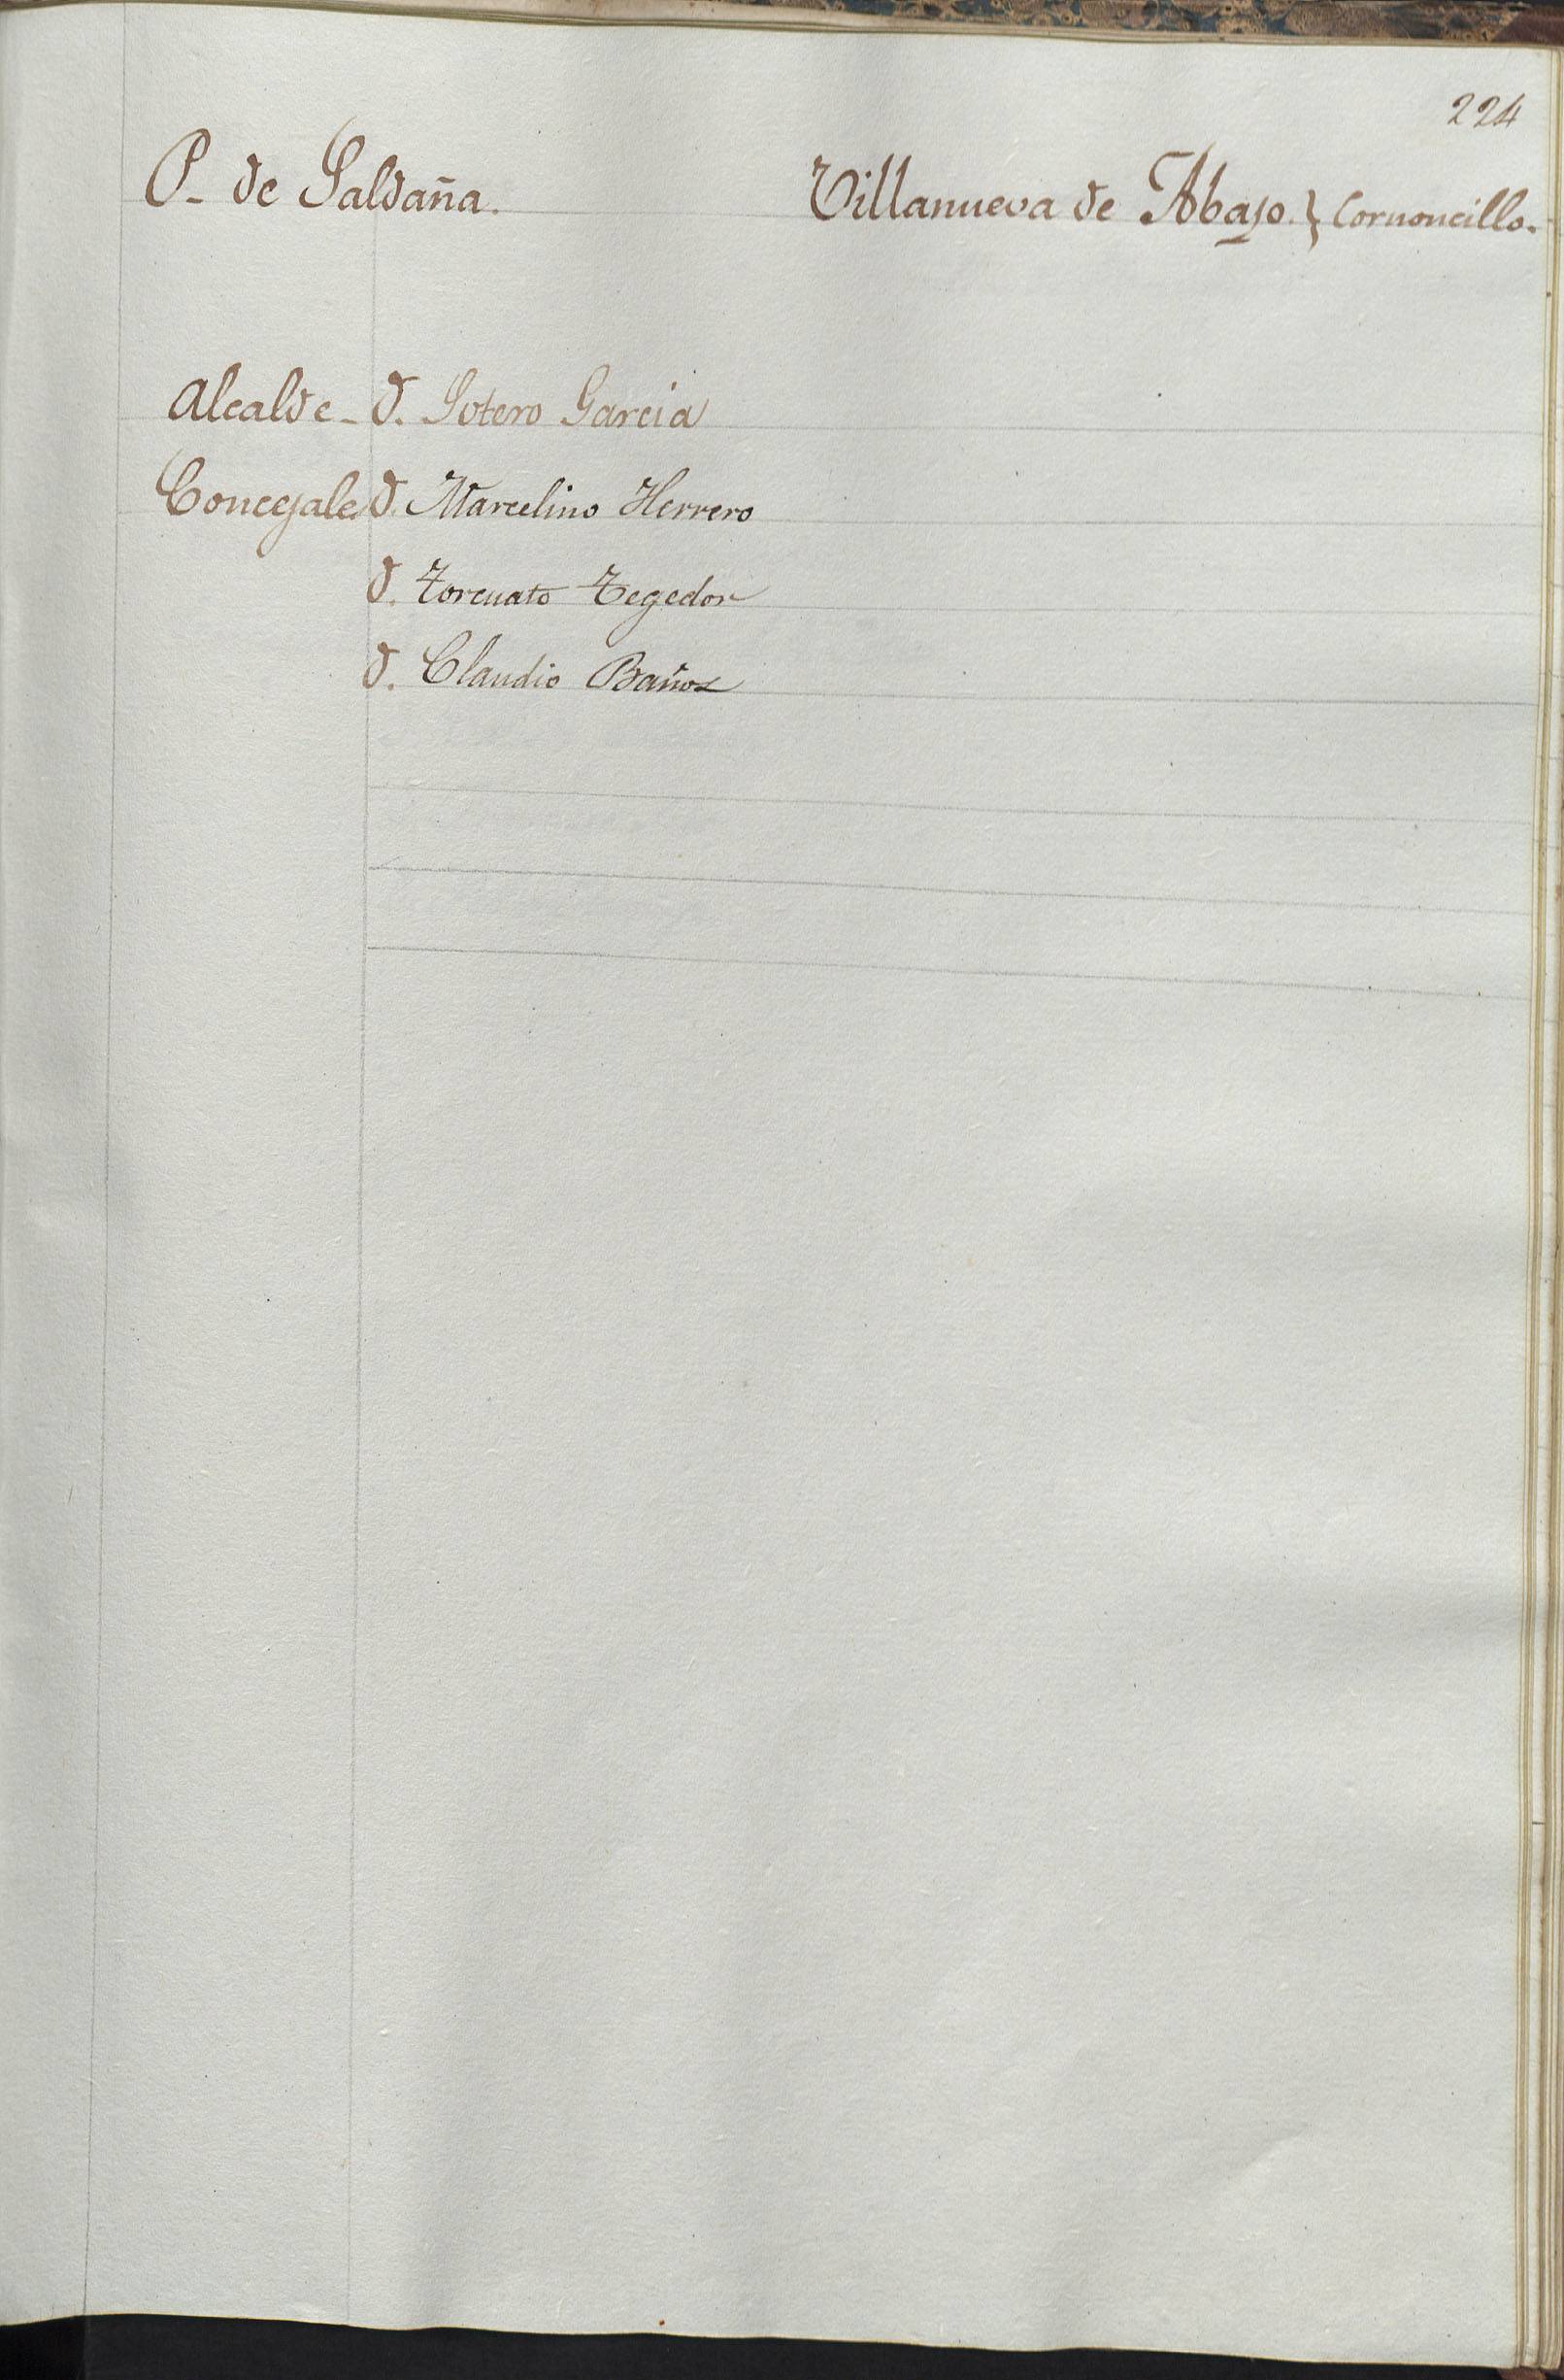 224
P- de Saldaña. Villanueva de Abajo. } Cornoncillo.
Alcalde - D. Sotero Garcia
Concejales D. Marcelino Herrero
D. Torcuato Tegedor
D. Claudio Baños